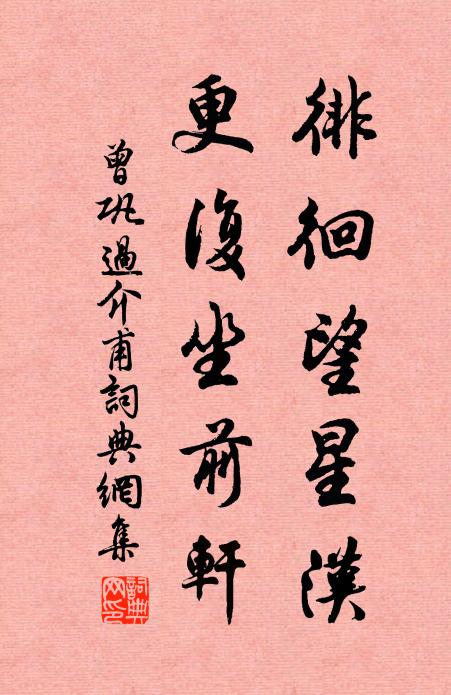 徘徊望星漢
更復坐前軒
曾鞏過介甫詞典網集
詞典網印